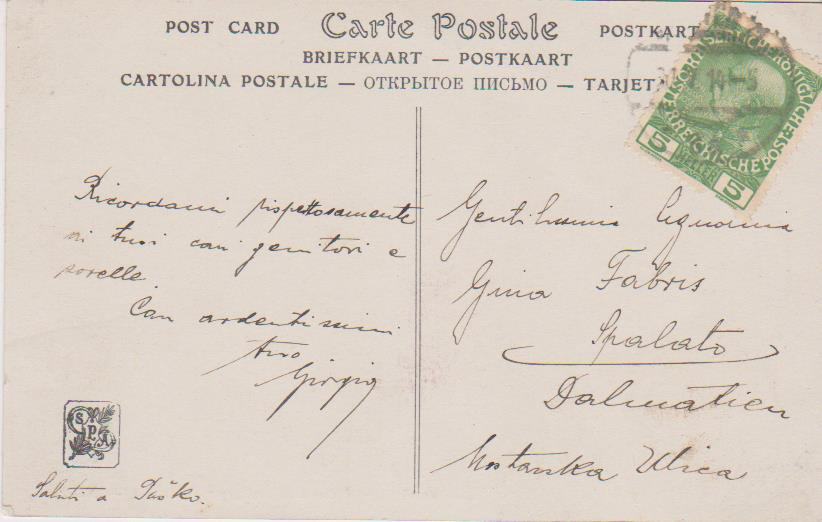 POST CARD Carte Postale POSTKART
BRIEFKAART — POSTKAART
CARTOLINA POSTALE — ОТКРЫТОЕ ПИСЬМО — TARJET
5 5
Ricordami rispettosamente
ai tuoi cari genitori e
sorelle.
Con ardentissimi
tuo
Giorgio
Saluti a Duško.
Gentilissima Signorina
Gina Fabris
Spalato
Dalmatien
Mostarska Ulica